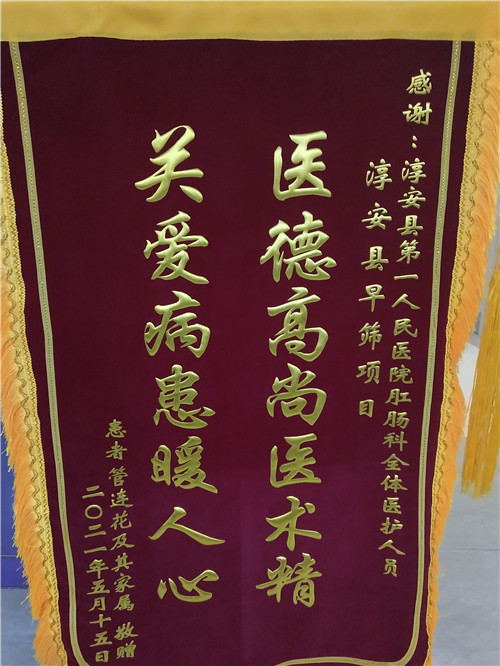 感谢：淳安县第一人民医院肛肠科全体医护人员
淳安县早筛项目
医德高尚医术精
关爱病患暖人心
患者管连花及其家属 敬赠
二〇二一年五月十五日